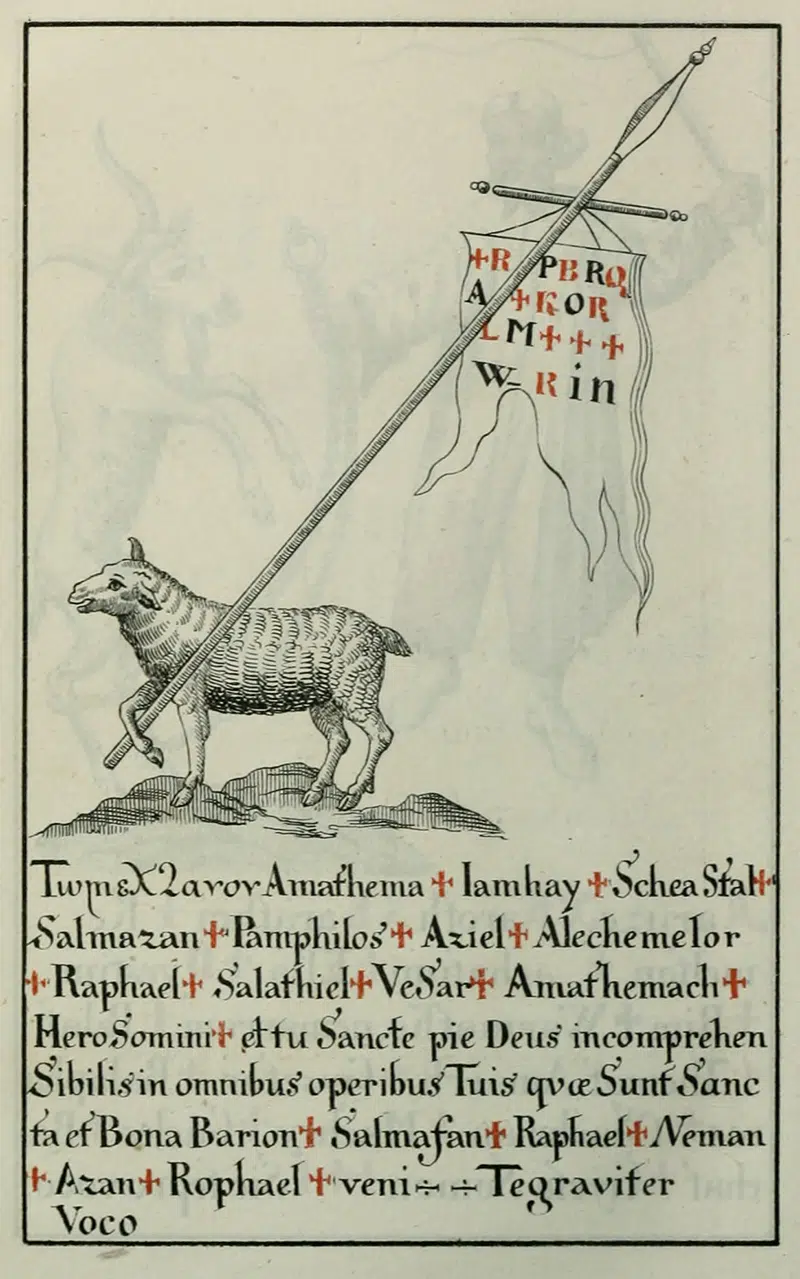 ✝R PBRQ
A ✝ROR
LM✝✝✝
W- Rin
Amathema ✝ Iamhay ✝ Schea Stal✝
Salmazan ✝ Pamphilos ✝ Aziel ✝ Alechemelor
✝ Raphael ✝ Salathiel ✝ VeSar ✝ Amathemach ✝
HeroSomini ✝ et tu Sancte pie Deus incomprehen
Sibilis in omnibus operibus Tuis qvæ Sunt Sanc
ta et Bona Barion ✝ Salmasan ✝ Raphael ✝ Neman
✝ Azan ✝ Rophael ✝ veni ÷ ÷ Te graviter
Voco